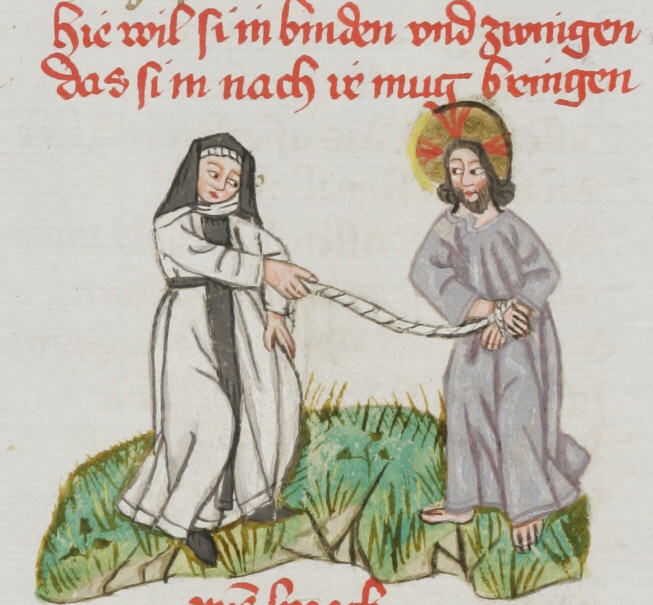 hie wil si in binden vnd zwingen
das si in nach ir mug bringen